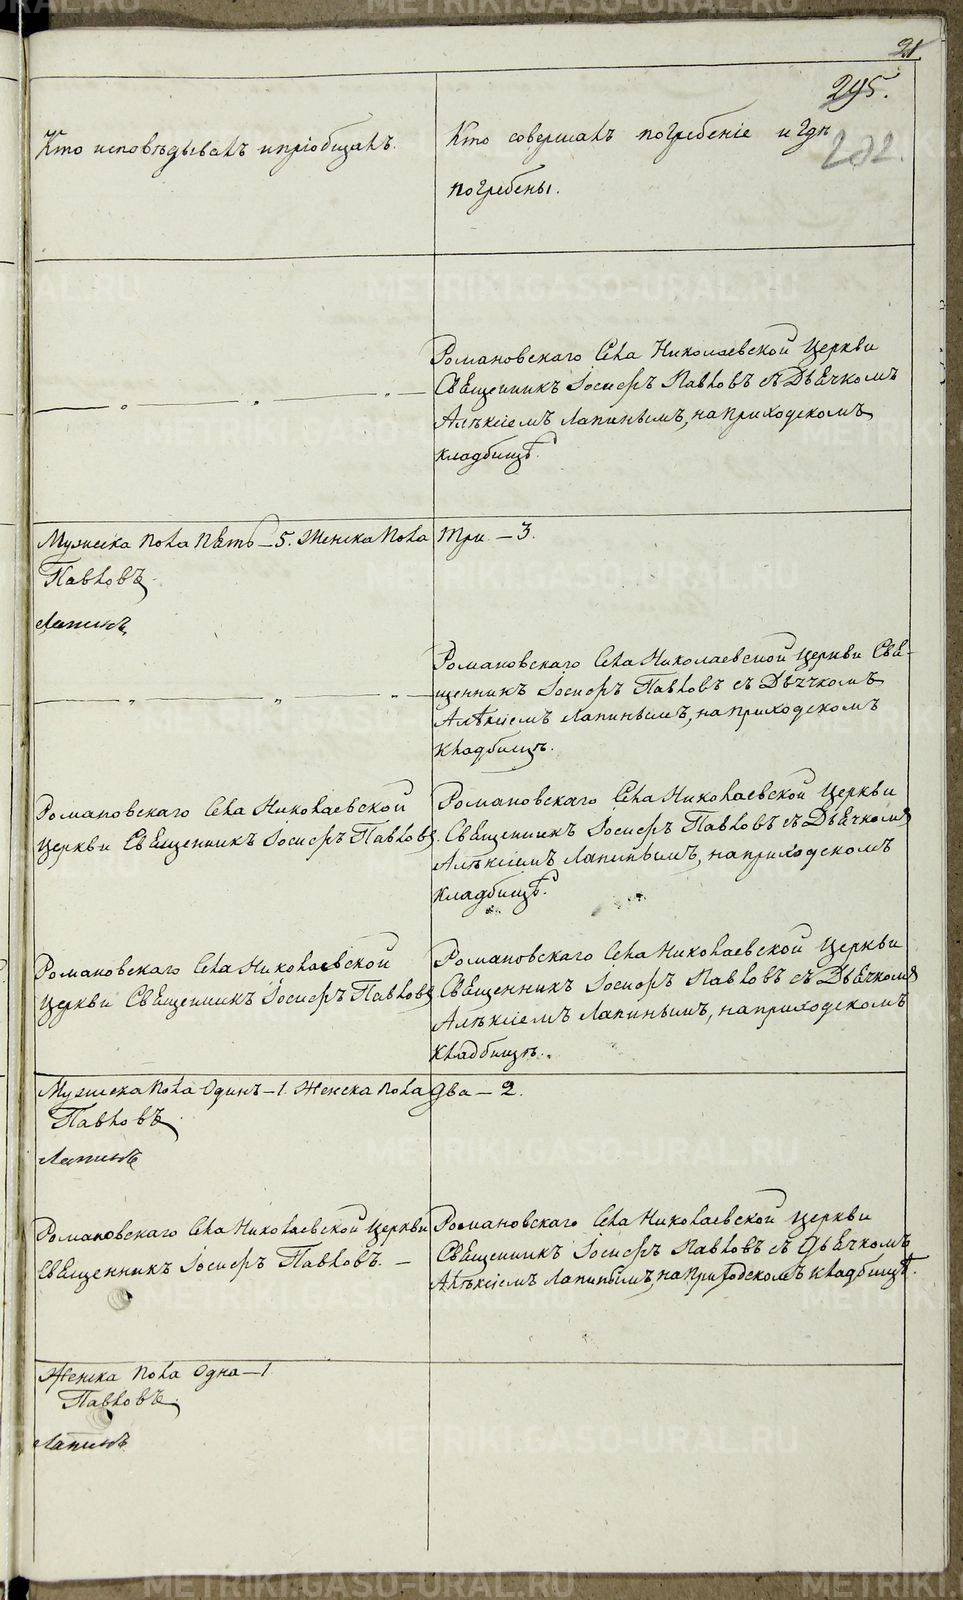 21.
295.
202.
Кто исповѣдывалъ и пріобщалъ.
Кто совершалъ погребеніе и гдѣ
погребены.
Романовскаго Села Николаевской Церкви
Священникъ Іосифъ Павловъ съ Дьячкомъ
Алѣксіемъ Лапинымъ, на приходскомъ
кладбищѣ.
Мужеска пола пять – 5. Женска пола три – 3.
Павловъ
Лапинъ
Романовскаго Села Николаевской Церкви Свя-
щенникъ Іосифъ Павловъ съ Дьячкомъ
Алѣксіемъ Лапинымъ, на приходскомъ
кладбищѣ.
Романовскаго Села Николаевской
Церкви Священникъ Іосифъ Павловъ
Романовскаго Села Николаевской Церкви
Священникъ Іосифъ Павловъ съ Дьячкомъ
Алѣксіемъ Лапинымъ, на приходскомъ
кладбищѣ.
Романовскаго Села Николаевской
Церкви Священникъ Іосифъ Павловъ
Романовскаго Села Николаевской Церкви
Священникъ Іосифъ Павловъ съ Дьячкомъ
Алѣксіемъ Лапинымъ, на приходскомъ
кладбищѣ.
Мужеска пола Одинъ – 1. Женска пола два – 2.
Павловъ
Лапинъ
Романовскаго Села Николаевской Церкви
Священникъ Іосифъ Павловъ. –
Романовскаго Села Николаевской Церкви
Священникъ Іосифъ Павловъ съ Дьячкомъ
Алѣксіемъ Лапинымъ, на Приходскомъ кладбищѣ.
Женска пола Одна – 1.
Павловъ
Лапинъ
METRIKI.GASO-URAL.RU